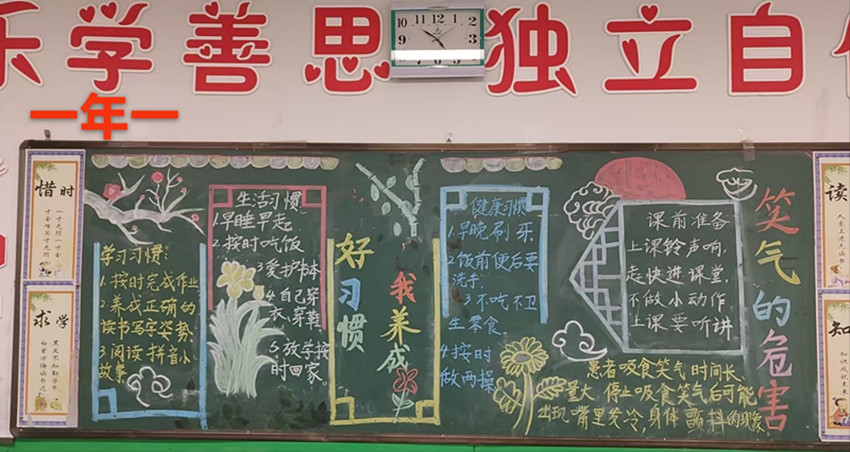 乐学善思 独立自
一年一
惜时
求学
学习习惯：
1.按时完成作业
2.养成正确的
读书写字姿势
3.阅读拼音小
故事
生活习惯
1.早睡早起
2.按时吃饭
3爱护书本
4.自己穿
衣、穿鞋
5.放学按
时回家。
好习惯
我养成
健康习惯
1.早晚刷牙
2.饭前便后要
洗手
3不吃不卫
生零食。
4.按时
做两操
课前准备
上课铃声响，
赶快进课堂，
不做小动作，
上课要听讲
笑气的危害
患者吸食笑气时间长、
量大，停止吸食笑气后可能
出现嘴里发冷，身体颤抖的现象
读
知